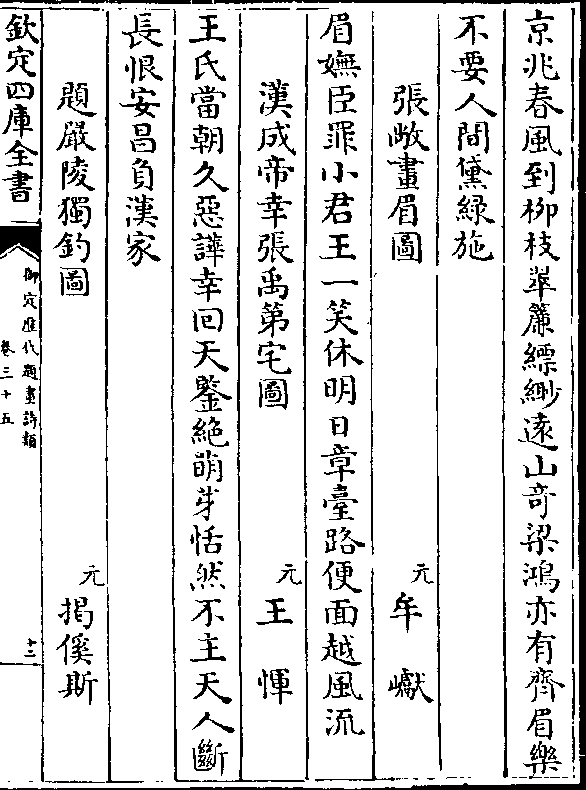 京兆春風到柳枝翠簾縹緲遠山竒梁鴻亦有齊眉樂
不要人間黛緑施
張敞畫眉圖　元　牟巘
眉嫵臣罪小君王一笑休明日章臺路便面越風流
漢成帝幸張禹第宅圖　元　王惲
王氏當朝久惡譁幸回天鑒絶萌芽恬然不主天人斷
長恨安昌負漢家
題嚴陵獨釣圖　元　揭傒斯
欽定四庫全書
御定歴代題畫詩類
卷三十五
十三